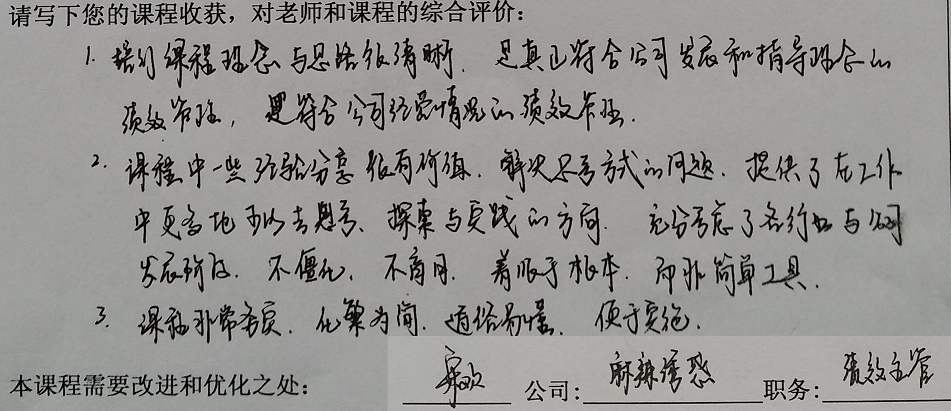 请写下您的课程收获，对老师和课程的综合评价：
1. 培训课程理念与思路很清晰．是真正符合公司发展和指导理念的
绩效管理，是符合公司经营情况的绩效管理．
2. 课程中一些经验分享很有价值．解决思考方式的问题．提供了在工作
中更多地可以去思考、探索与实践的方向．充分考虑了各行业与公司
发展阶段．不僵化．不商用．着眼于根本．而非简单工具．
3. 课程非常务实．化繁为简．通俗易懂．便于实施．
本课程需要改进和优化之处： 公司：麻辣诱惑 职务：绩效主管